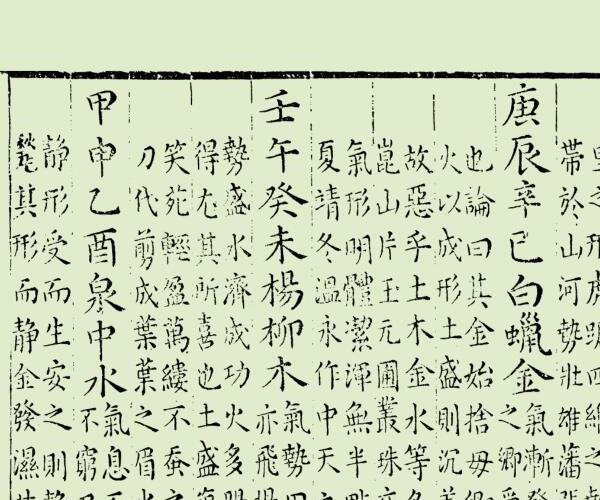 帶於山河勢壯雄藩
庚辰辛巳白蠟金
氣漸
之卿受
也論曰其金始捨毋
火以成形土盛則沉
故惡乎土木金水等
崑山片玉元圃叢珠
氣形明體潔渾無半
夏靖冬溫永作中天
壬午癸未楊柳木
氣勢
亦飛
勢盛水濟成功火多
得尤其所喜也土盛
笑菀輕盈萬縷不蚕之
刀代剪成葉葉之眉
甲申乙酉泉中水
氣息
不窮
靜形受而生安之則
其形而靜金發濕